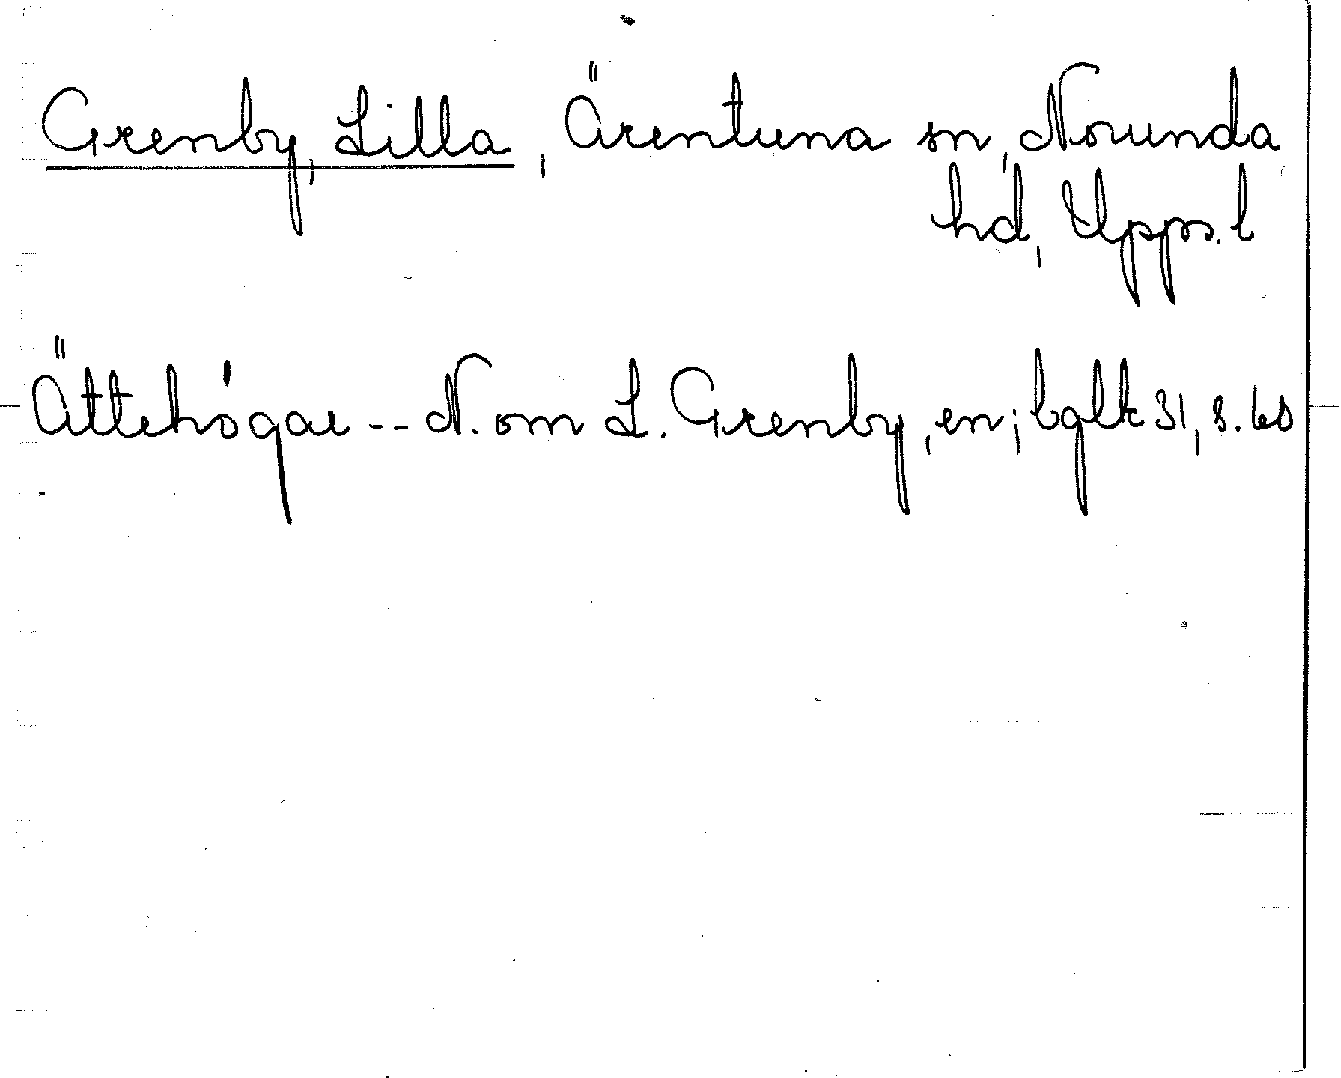 Grenby, Lilla, Ärentuna sn, Norunda
hd, Upps. l
Ättehögar -- N. om L. Grenby, en; bglk 31, s. 60